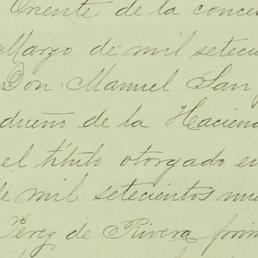 Oriente de la conces
Marzo de mil setecie
Don Manuel San
dueño de la Haciend
el título otorgado en
de mil setecientos nu
Pérez de Rivera